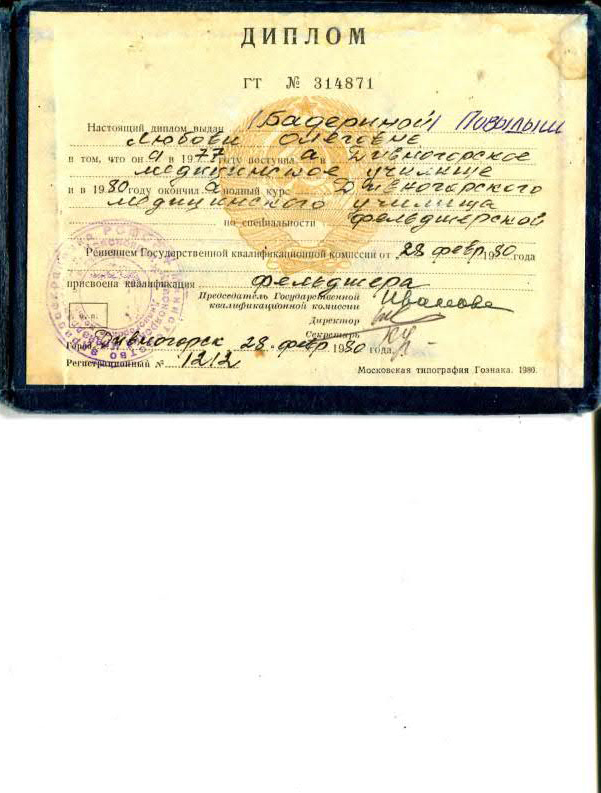 ДИПЛОМ
ГТ № 314871
Настоящий диплом выдан (Бадериной)
Любови Олеговне
в том, что он а в 1977 году поступил а в Дивногорское
медицинское училище
и в 1980 году окончил а полный курс Дивногорского
медицинского училища
по специальности фельдшерской
Решением Государственной квалификационной комиссии от 28 февр. 1980 года
присвоена квалификация фельдшера
Председатель Государственной
квалификационной комиссии Иванова
Директор
Секретарь
Город Дивногорск 28. февр. 1980 года.
Регистрационный № 1212
Московская типография Гознака. 1980.